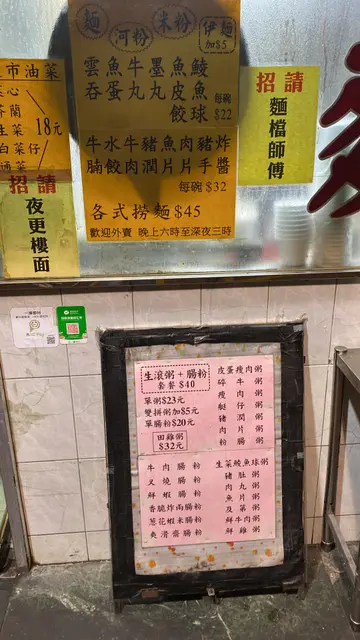 麵
河粉
米粉
伊麵
加$5
雲吞
魚蛋
牛丸
墨丸
魚皮餃
鯪魚球
每碗
$22
牛腩
水餃
牛肉
豬潤
魚片
肉片
豬手
炸醬
每碗 $32
各式捞麵 $45
歡迎外賣 晚上六時至深夜三時
市油菜
菜心
芥蘭
生菜
白菜仔
18元
招請
夜更樓面
招請
麵檔師傅
生滾粥+腸粉
套餐 $40
單粥$23元
雙拼粥加$5元
單腸粉$20元
田雞粥
$32元
皮蛋瘦肉粥
碎牛粥
瘦肉粥
艇仔粥
豬潤粥
肉片粥
粉腸粥
牛肉腸粉
叉燒腸粉
鮮蝦腸粉
香脆炸両腸粉
葱花蝦米腸粉
爽滑齋腸粉
生菜鯪魚球粥
豬肚粥
肉丸粥
魚片粥
及第粥
鮮牛肉粥
鮮雞粥